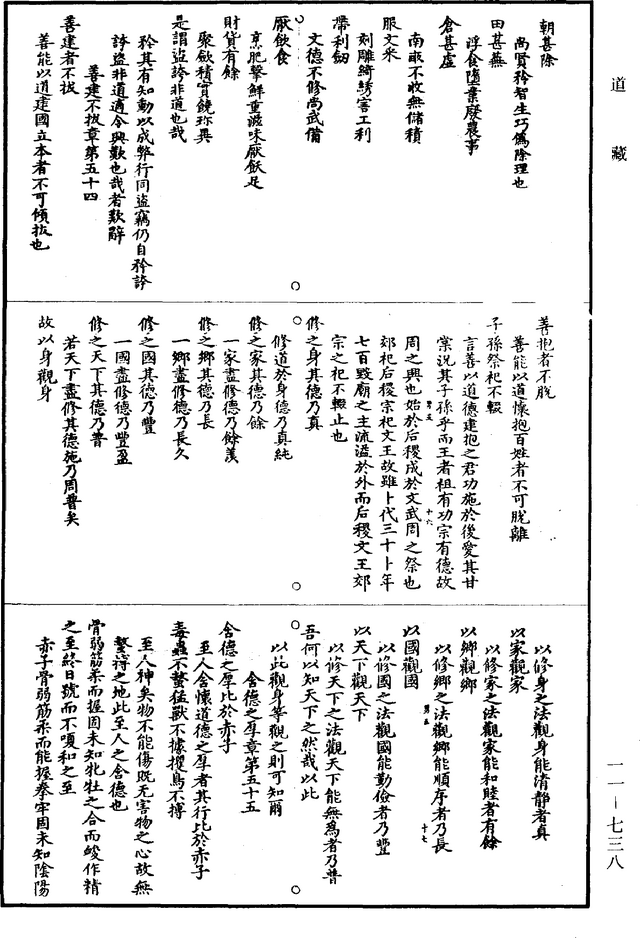 道藏
朝甚除
尚賢矜智生巧偽除理也
田甚蕪
浮食隨業廢農事
倉甚虛
南畝不收無儲積
服文采
刻雕綺綉害工利
帶利劒
文德不修尚武備
厭飲食
烹肥擊鮮重滋味厭飫足
財貨有餘
聚斂積實饒珎異
是謂盜誇非道也哉
矜其有知動以成弊行同盜竊仍自矜誇
誇盜非道適令興歎也哉者歎辭
善建不拔章第五十四
善建者不拔
善能以道建國立本者不可傾拔也
善抱者不脫
善能以道懷抱百姓者不可脫離
子孫祭祀不輟
言善以道德建抱之君功施於後愛其甘
棠況其子孫乎而王者祖有功宗有德故
周之興也始於后稷成於文武周之祭也
郊祀后稷宗祀文王故雖卜代三十卜年
七百毀廟之主流溢於外而后稷文王郊
宗之祀不輟止也
修之身其德乃真
修道於身德乃真純
修之家其德乃餘
一家盡修德乃餘羨
修之鄉其德乃長
一鄉盡修德乃長久
修之國其德乃豐
一國盡修德乃豐盈
修之天下其德乃普
若天下盡修其德施乃周普矣
故以身觀身
以修身之法觀身能清靜者真
以家觀家
以修家之法觀家能和睦者有餘
以鄉觀鄉
以修鄉之法觀鄉能順序者乃長
以國觀國
以修國之法觀國能勤儉者乃豐
以天下觀天下
以修天下之法觀天下能無為者乃普
吾何以知天下之然哉以此
以此觀身等觀之則可知爾
含德之厚章第五十五
含德之厚比於赤子
至人含懷道德之厚者其行比於赤子
毒蟲不螫猛獸不據攫鳥不搏
至人神矣物不能傷既无害物之心故無
螫搏之地此至人之含德也
骨弱筋柔而握固未知牝牡之合而峻作精
之至終日號而不嗄和之至
赤子骨弱筋柔而能握拳牢固未知陰陽
一一－七三八